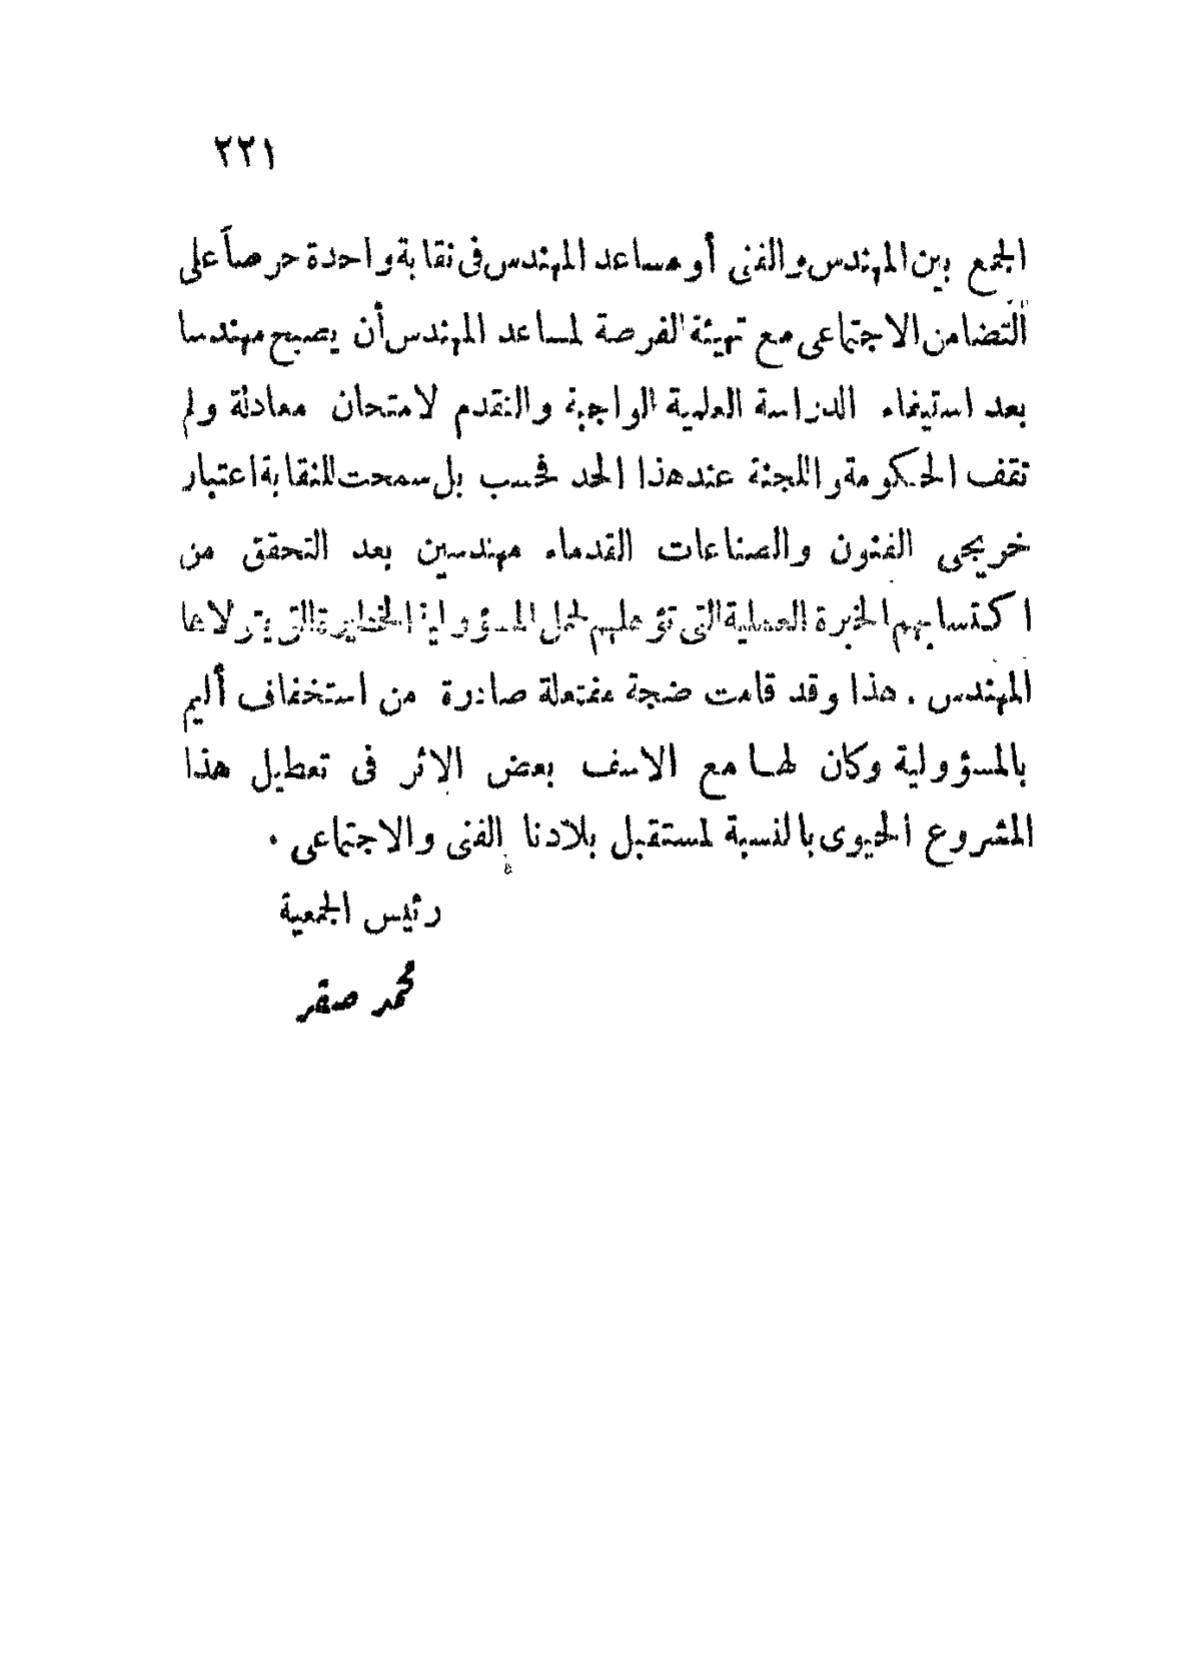 ٢٢١
الجمع بين المهندس والفنى أو مساعد المهندس فى نقابة واحدة حرصاً على
التضامن الاجتماعى مع تهيئة الفرصة لمساعد المهندس أن يصبح مهندسا
بعد استيفاء الدراسة العلمية الواجبة والتقدم لامتحان معادلة ولم
تقف الحكومة واللجنة عند هذا الحد فحسب بل سمحت للنقابة اعتبار
خريجى الفنون والصناعات القدماء مهندسين بعد التحقق من
اكتسابهم الخبرة العملية التى تؤهلهم لحمل المسؤولية الخطيرة التى يتولاها
المهندس . هذا وقد قامت ضجة مفتعلة صادرة من استخفاف أليم
بالمسؤولية وكان لها مع الاسف بعض الاثر فى تعطيل هذا
المشروع الحيوى بالنسبة لمستقبل بلادنا الفنى والاجتماعى .
رئيس الجمعية
محمد صقر